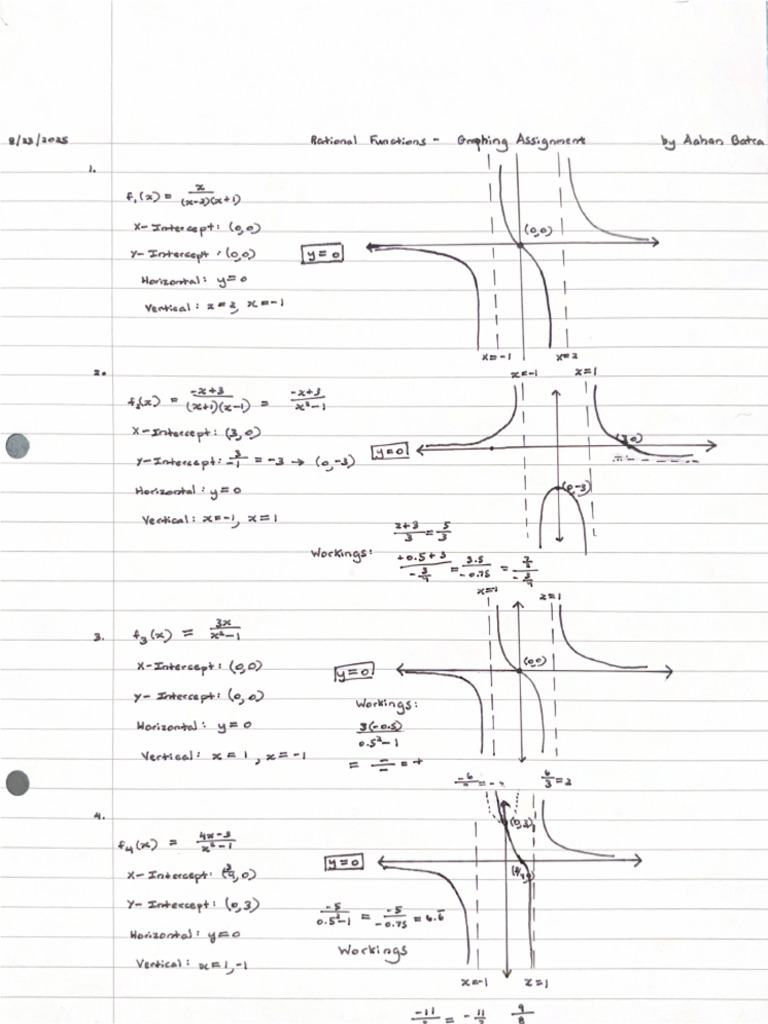 8/23/2025 Rational Functions - Graphing Assignment by Aahan Batra
1.
f₁(x) = x/((x-2)(x+1))
X-Intercept: (0,0)
Y-Intercept: (0,0)
Horizontal: y=0
Vertical: x=2, x=-1
y=0
(0,0)
x=-1 x=2
2.
f₂(x) = (-x+3)/((x+1)(x-1)) = (-x+3)/(x²-1)
X-Intercept: (3,0)
Y-Intercept: 3/-1 = -3 → (0,-3)
Horizontal: y=0
Vertical: x=-1, x=1
x=-1 x=1
y=0
(3,0)
(0,-3)
Workings:
(2+3)/3 = 5/3
(+0.5+3)/(-3/4) = 3.5/-0.75 =
3.
f₃(x) = 3x/(x²-1)
X-Intercept: (0,0)
Y-Intercept: (0,0)
Horizontal: y=0
Vertical: x=1, x=-1
x=-1 x=1
(0,0)
y=0
Workings:
3(-0.5)/(0.5²-1)
= -/- = +
6/3 = 2
4.
f₄(x) = (4x-3)/(x²-1)
X-Intercept: (3/4,0)
Y-Intercept: (0,3)
Horizontal: y=0
Vertical: x=1,-1
y=0
(0,3)
-5/(0.5²-1) = -5/-0.75 = 6.6̅
Workings
x=-1 x=1
9/8